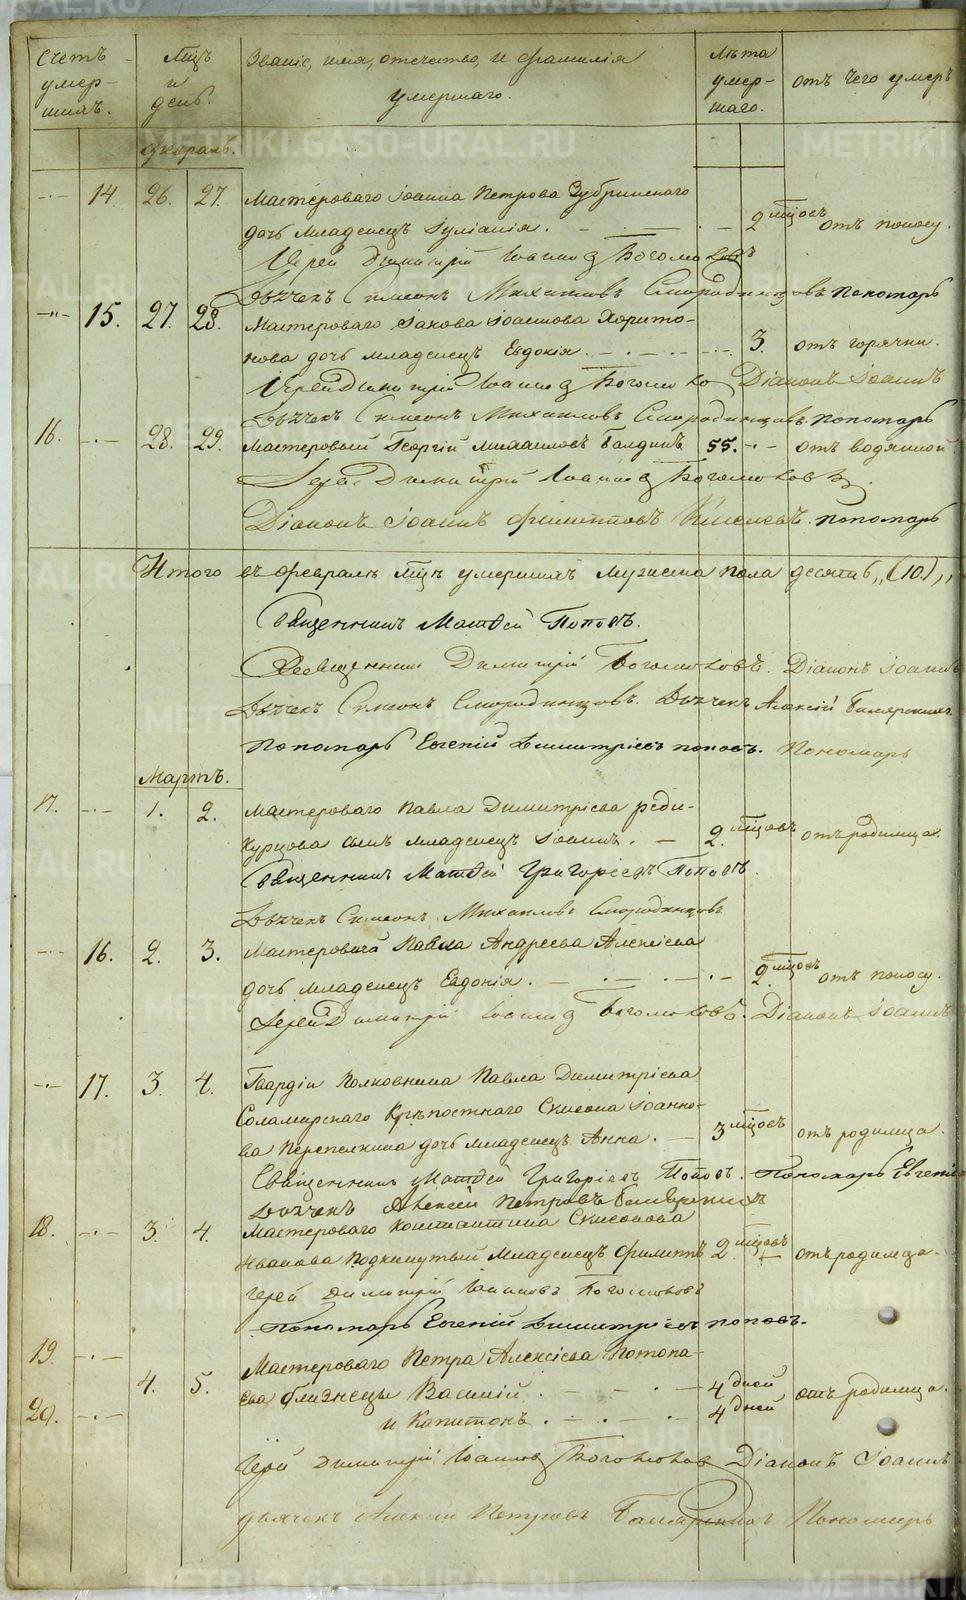 Счетъ умершихъ.
Мцъ и день.
Званіе, имя, отечество, и фамилія умершаго.
Лѣта умершаго.
отъ чего умеръ
Февраль.
14 26. 27. Мастероваго Іоанна Петрова Зубринскаго
дочь младенецъ Іуліанія. 2 мцовъ отъ поносу.
Іерей Димитрій Іоанновъ Богомоловъ
Дьячекъ Симеонъ Михаиловъ Смородинцовъ пономарь
15. 27. 28. Мастероваго Іакова Іоаннова Харито-
нова дочь младенецъ Евдокія. 3. отъ горячки.
Іерей Димитрій Іоанновъ Богомоловъ Діаконъ Іоаннъ
Дьячекъ Симеонъ Михаиловъ Смородинцовъ. пономарь
16. 28. 29. Мастеровый Георгій Михаиловъ Балдинъ 55. отъ водянной
Іерей Димитрій Іоанновъ Богомоловъ
Діаконъ Іоаннъ Филипповъ Киселевъ. пономарь
Итого въ февралѣ мцѣ умершихъ мужеска пола десять „(10.)„
Священникъ Матѳей Поповъ.
Священникъ Димитрій Богомоловъ. Діаконъ Іоаннъ
Дьячекъ Симеонъ Смородинцовъ. Дьячекъ Алексій
Пономарь Евгеній Димитріевъ поповъ. Пономарь
Мартъ.
17. 1. 2. Мастероваго Павла Димитріева реди-
курцова сынъ младенецъ Іоаннъ. 2. мцовъ отъ родимца.
Священникъ Матѳей Григоріевъ Поповъ.
Дьячекъ Симеонъ Михаиловъ Смородинцовъ
16. 2. 3. Мастероваго Павла Андреева Алексіева
дочь младенецъ Евдокія. 2. мцовъ отъ поносу.
Іерей Димитрій Іоанновъ Богомоловъ. Діаконъ Іоаннъ
17. 3. 4. Гвардіи Полковника Павла Димитріева
Соламирскаго Крѣпостнаго Симеона Іоанно-
ва Перепелкина дочь младенецъ Анна. 3 мцовъ отъ родимца.
Священникъ Матѳей Григоріевъ Поповъ. Пономарь Евгеній
Дьячекъ Алексій Петровъ
18. 3. 4. Мастероваго Константина Симеонова
Иванова Подкинутый младенецъ Филиппъ 2 мцовъ отъ родимца.
Іерей Димитрій Іоанновъ Богомоловъ
Пономарь Евгеній Димитріевъ поповъ.
19. Мастероваго Петра Алексіева Потопа-
4. 5. ева близнецы Василій. 4 дней отъ родимца.
20. и Капитонъ. 4 дней
Іерей Димитрій Іоанновъ Богомоловъ Діаконъ Іоаннъ
дьячекъ Алексій Петровъ Пономарь
METRIKI.GASO-URAL.RU